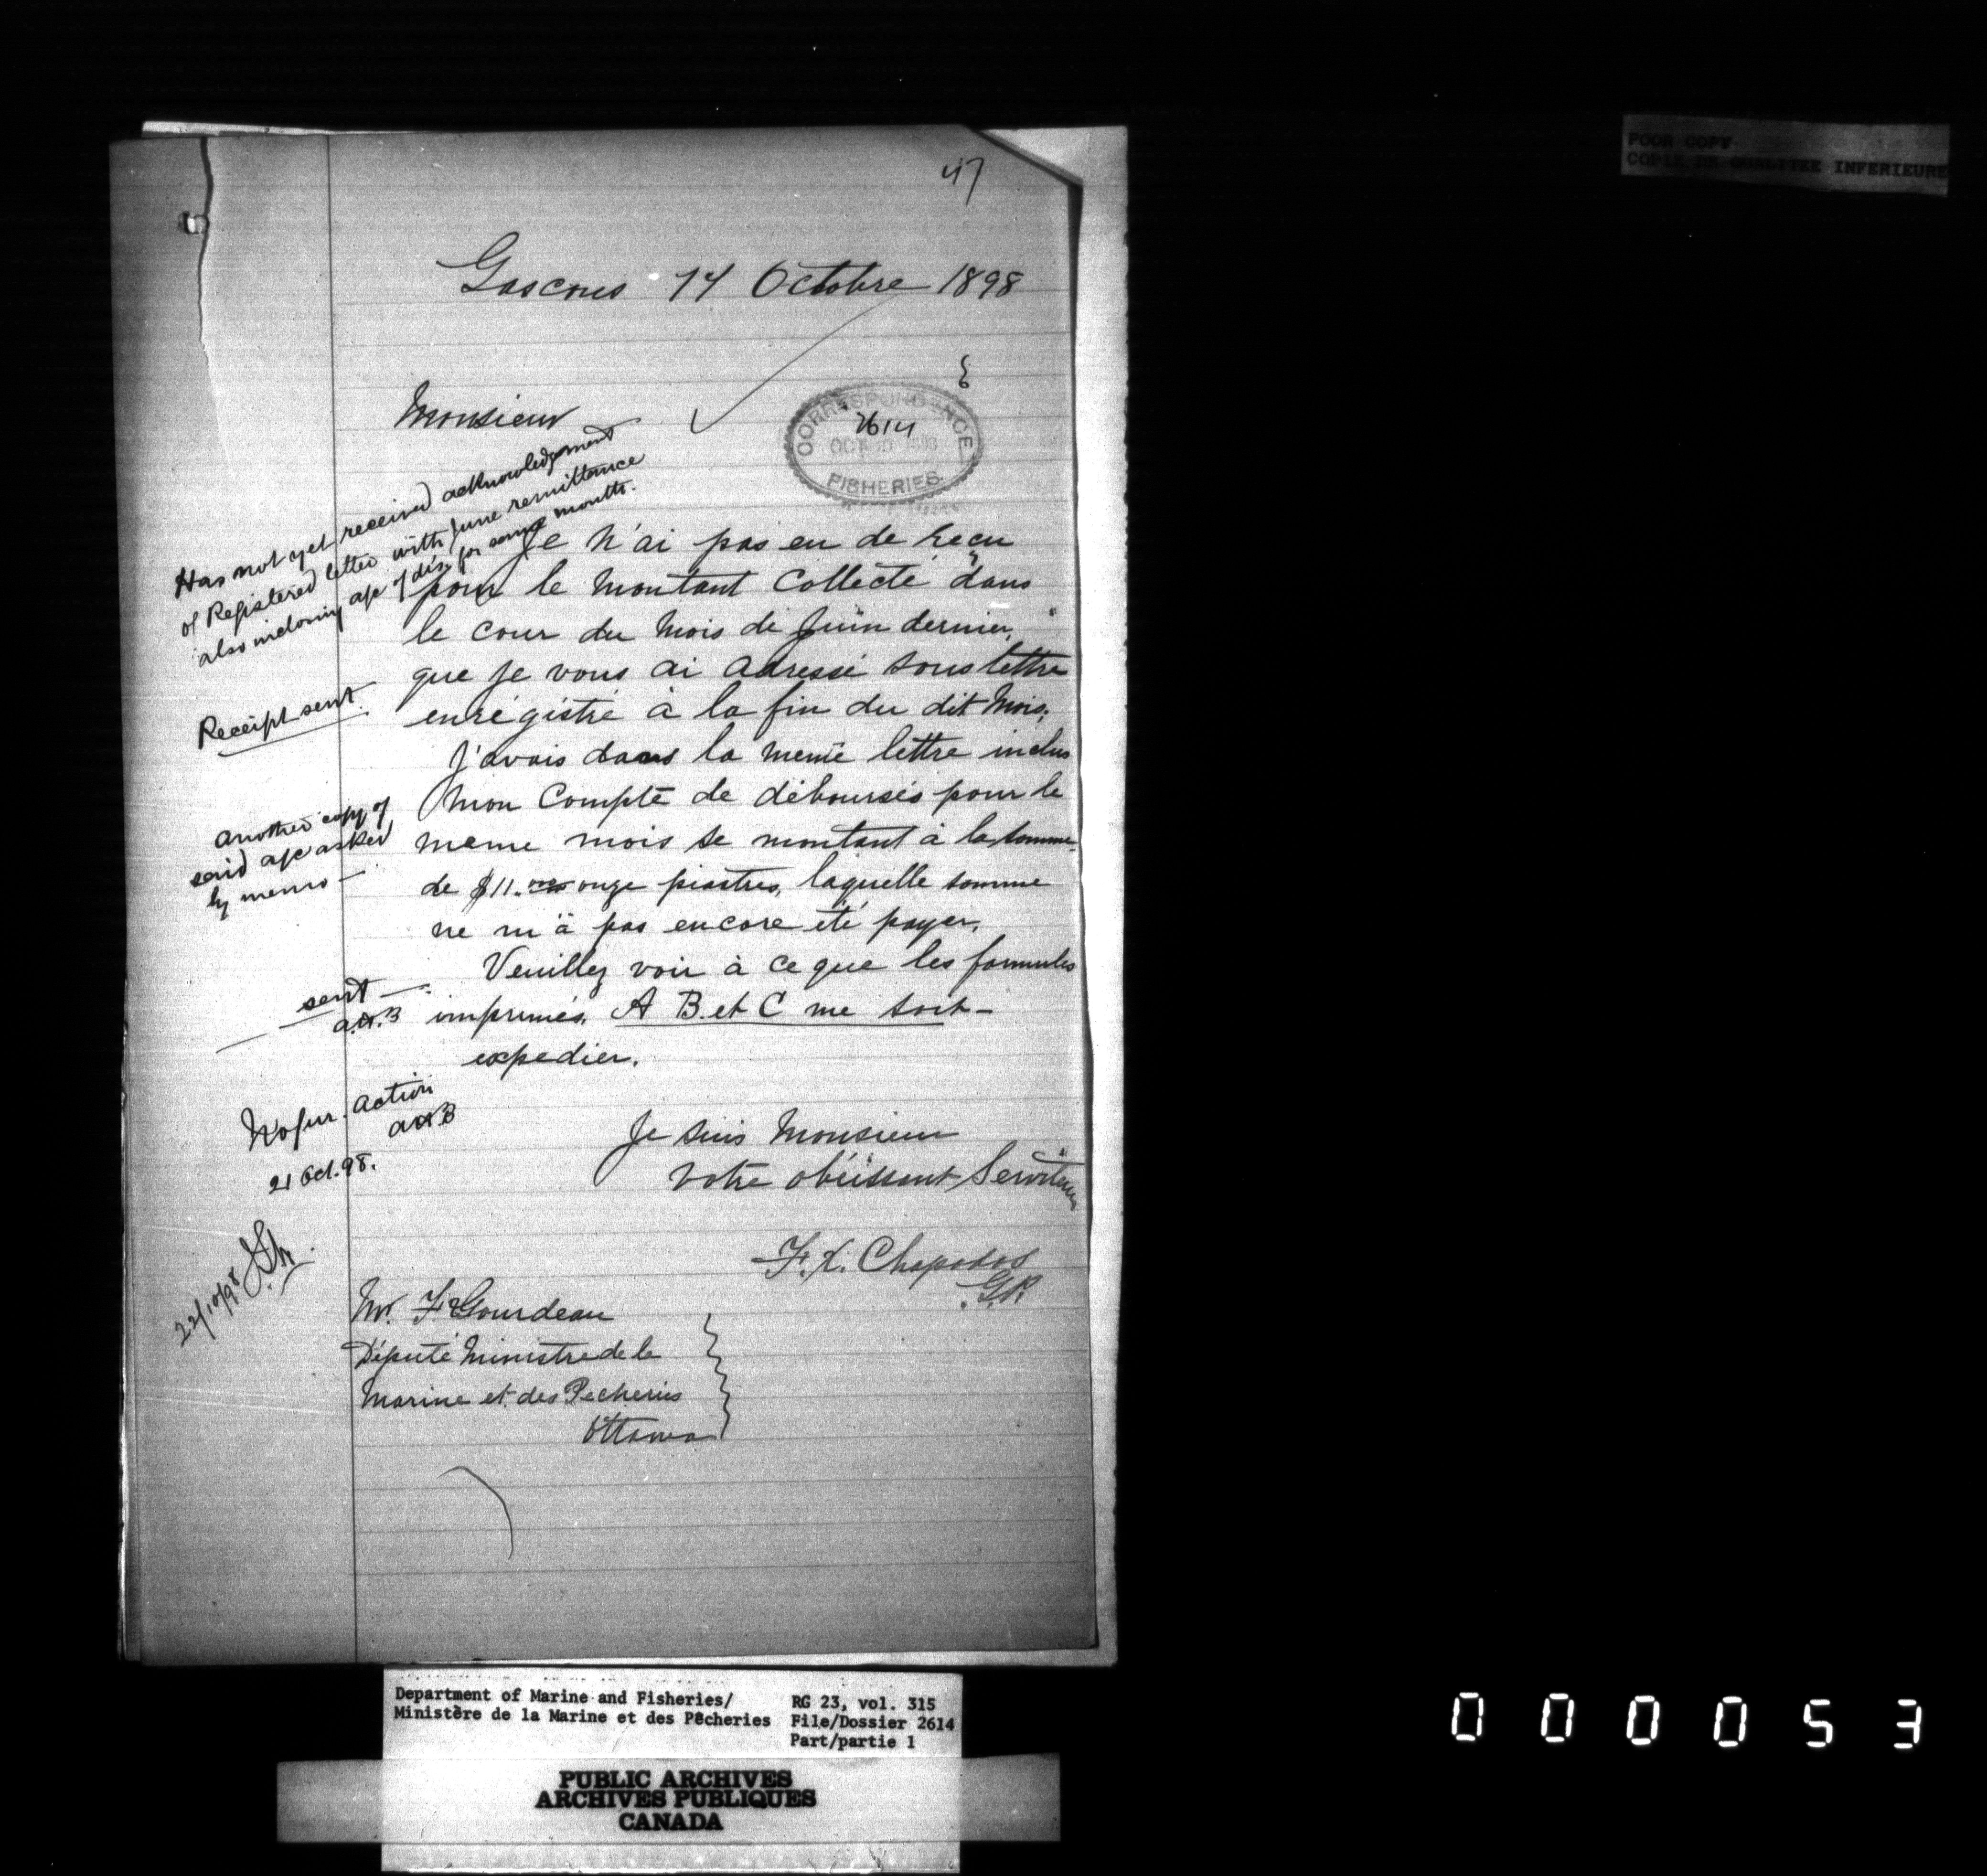 47
POOR COPY
COPIE DE QUALITEE INFERIEURE
Gascons 14 Octobre 1898
Monsieur
CORRESPONDENCE
2614
OCT 1898
FISHERIES.
Has not yet received acknowledgment
of Registered letter with June remittance
also inclosing a/c of dis. for same month.
Je n'ai pas eu de recu
pour le montant collecté dans
le cour du mois de Juin dernier,
que je vous ai adressé sous lettre
enrégistré à la fin du dit mois.
Receipt sent.
J'avais dans la meme lettre inclus
mon Compte de déboursés pour le
meme mois se montant à la somme
de $11. onze piastres, laquelle somme
ne m'a pas encore été payer.
another copy of
said a/c asked
by memo —
Veuillez voir à ce que les formules
imprimés. A B. et C me soit-
expedier.
sent —
No fur. action
21 Oct. 98.
Je suis Monsieur
votre obéissant Serviteur
F. X. Chapados
G.P.
22/10/98
Mr. F Gourdeau
Député Ministre de la
Marine et des Pecheries
Ottawa
Department of Marine and Fisheries/
Ministère de la Marine et des Pêcheries
RG 23, vol. 315
File/Dossier 2614
Part/partie 1
PUBLIC ARCHIVES
ARCHIVES PUBLIQUES
CANADA
000053